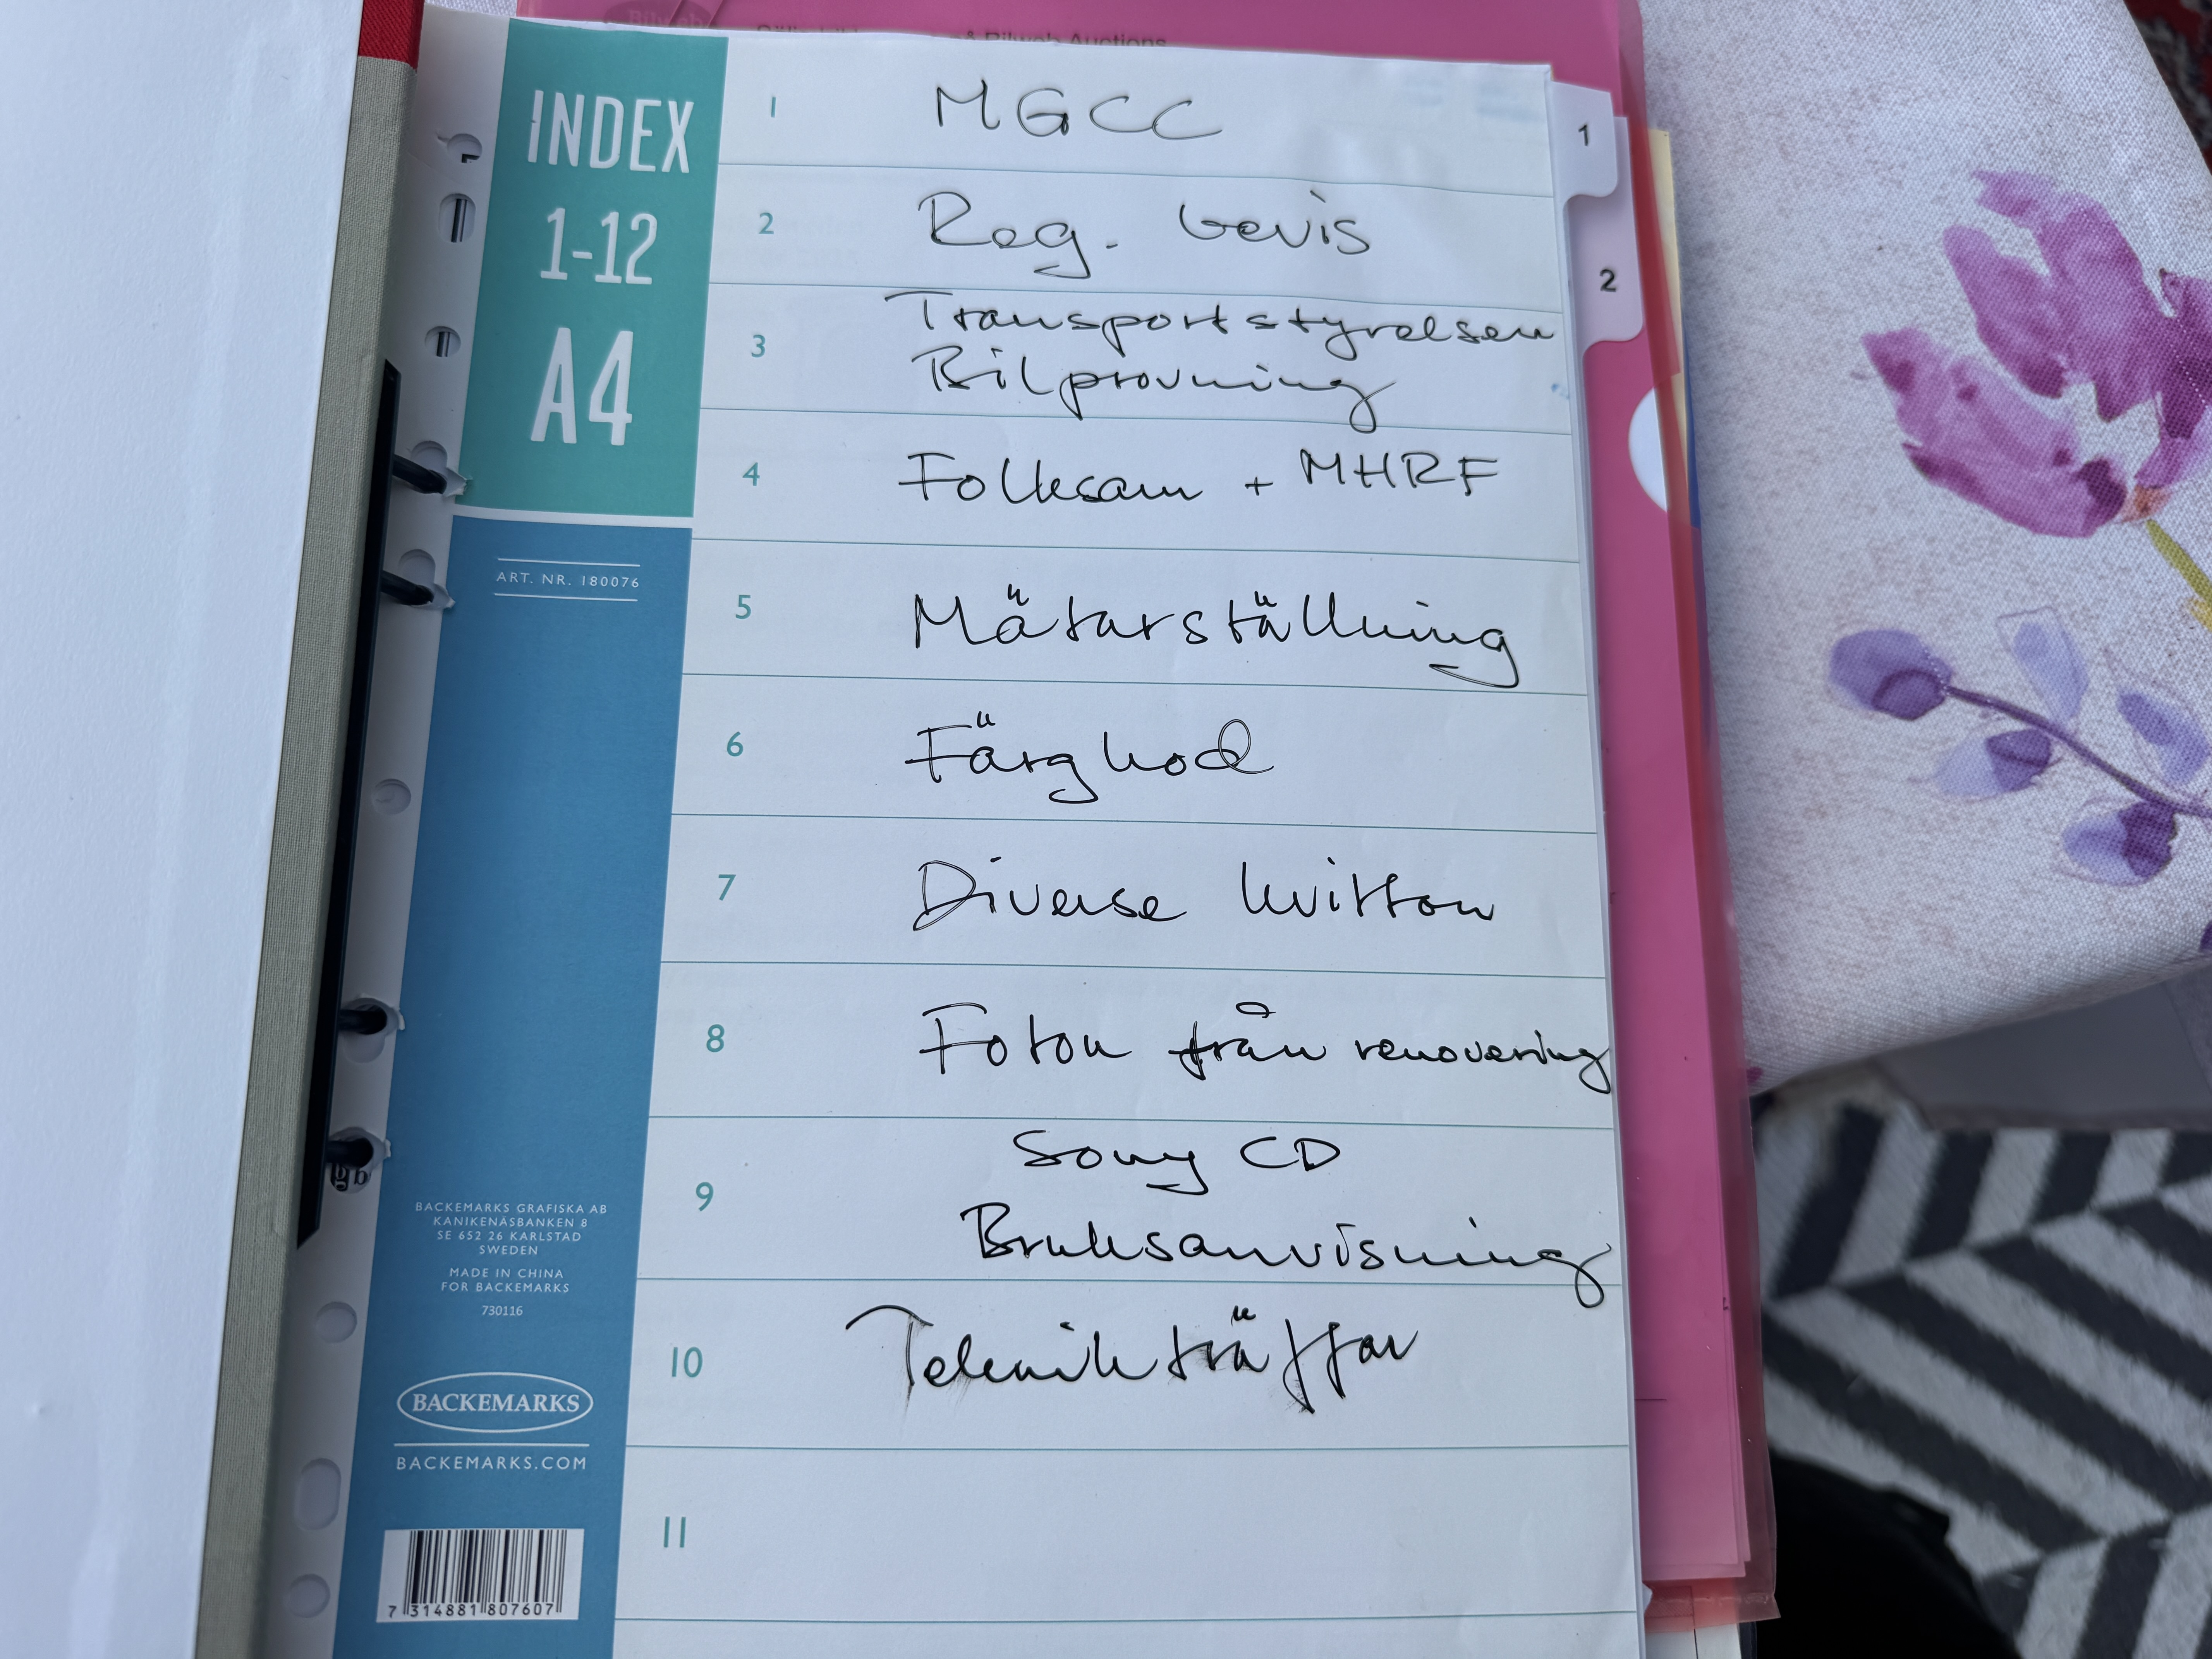 INDEX
1-12
A4
ART. NR. 180076
1 MGCC
2 Reg. bevis
3 Transportstyrelsen
Bilprovning
4 Folksam + MHRF
5 Mätarställning
6 Färgkod
7 Diverse kvitton
8 Foton från renovering
9 Sony CD
Bruksanvisning
10 Teknikträffar
11
BACKEMARKS GRAFISKA AB
KANIKENÄSBANKEN 8
SE 652 26 KARLSTAD
SWEDEN
MADE IN CHINA
FOR BACKEMARKS
730116
BACKEMARKS
BACKEMARKS.COM
7 314881 807607
1
2
& Bilweb Auctions